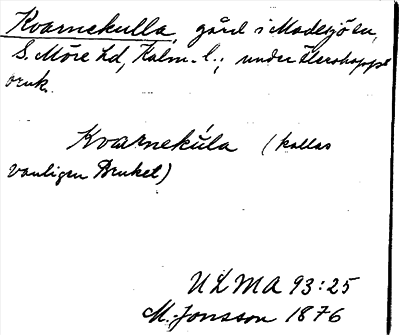 Kvarnekulla, gård i Madesjö sn,
S. Möre hd, Kalm. l.; under
bruk.
Kvarnekúla (kallas
vanligen Bruket)
ULMA 93:25
M. Jonsson 1876